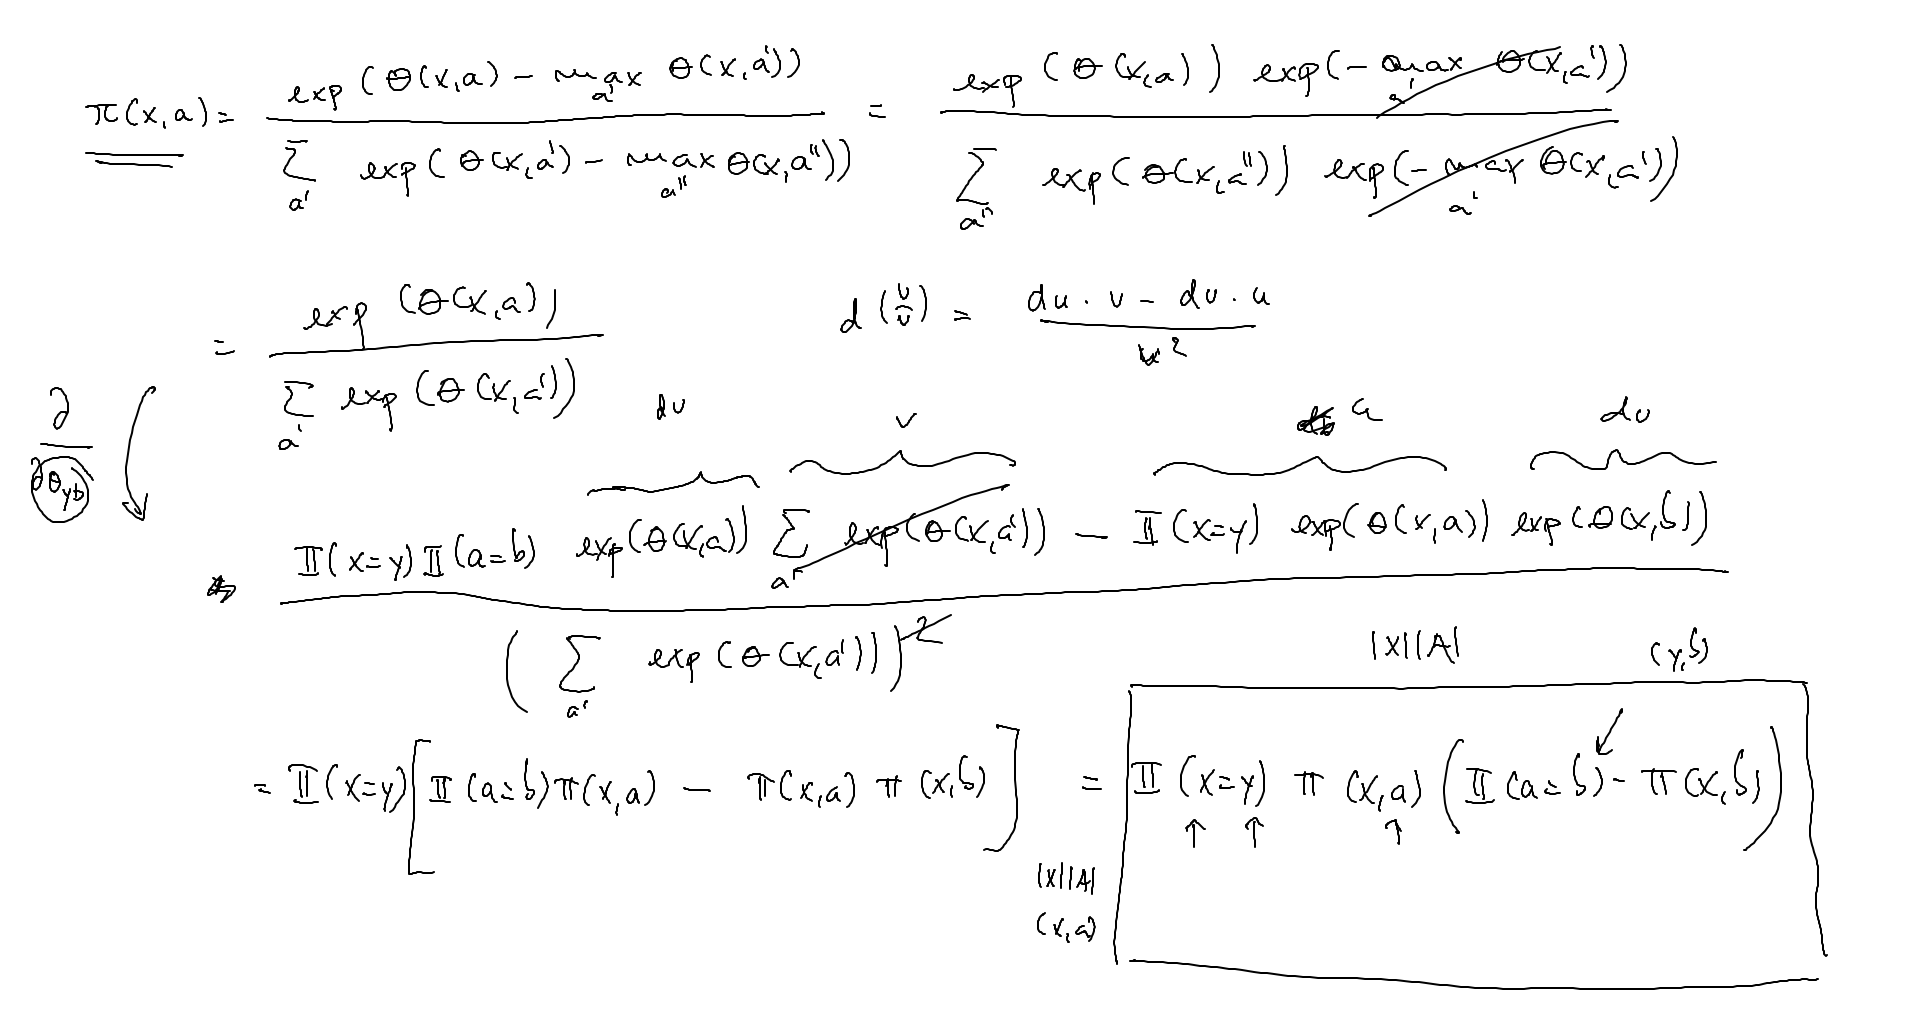 π(x,a) = exp(θ(x,a) - max_a' θ(x,a')) / Σ_a' exp(θ(x,a') - max_a'' θ(x,a'')) = exp(θ(x,a)) exp(-max_a' θ(x,a')) / Σ_a'' exp(θ(x,a'')) exp(-max_a' θ(x,a'))
= exp(θ(x,a)) / Σ_a' exp(θ(x,a'))
d(u/v) = (du · v - dv · u) / v²
∂/∂θ_yb
du v u dv
𝕀(x=y) 𝕀(a=b) exp(θ(x,a)) Σ_a' exp(θ(x,a')) - 𝕀(x=y) exp(θ(x,a)) exp(θ(x,b)) / (Σ_a' exp(θ(x,a')))²
|X||A| (y,b)
= 𝕀(x=y) [𝕀(a=b) π(x,a) - π(x,a) π(x,b)] = 𝕀(x=y) π(x,a) (𝕀(a=b) - π(x,b))
|X||A|
(x,a)